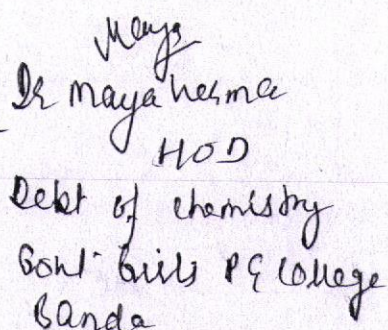 Maya
Dr Maya Verma
HOD
Debt of chemistry
Govt Girls PG College
Banda